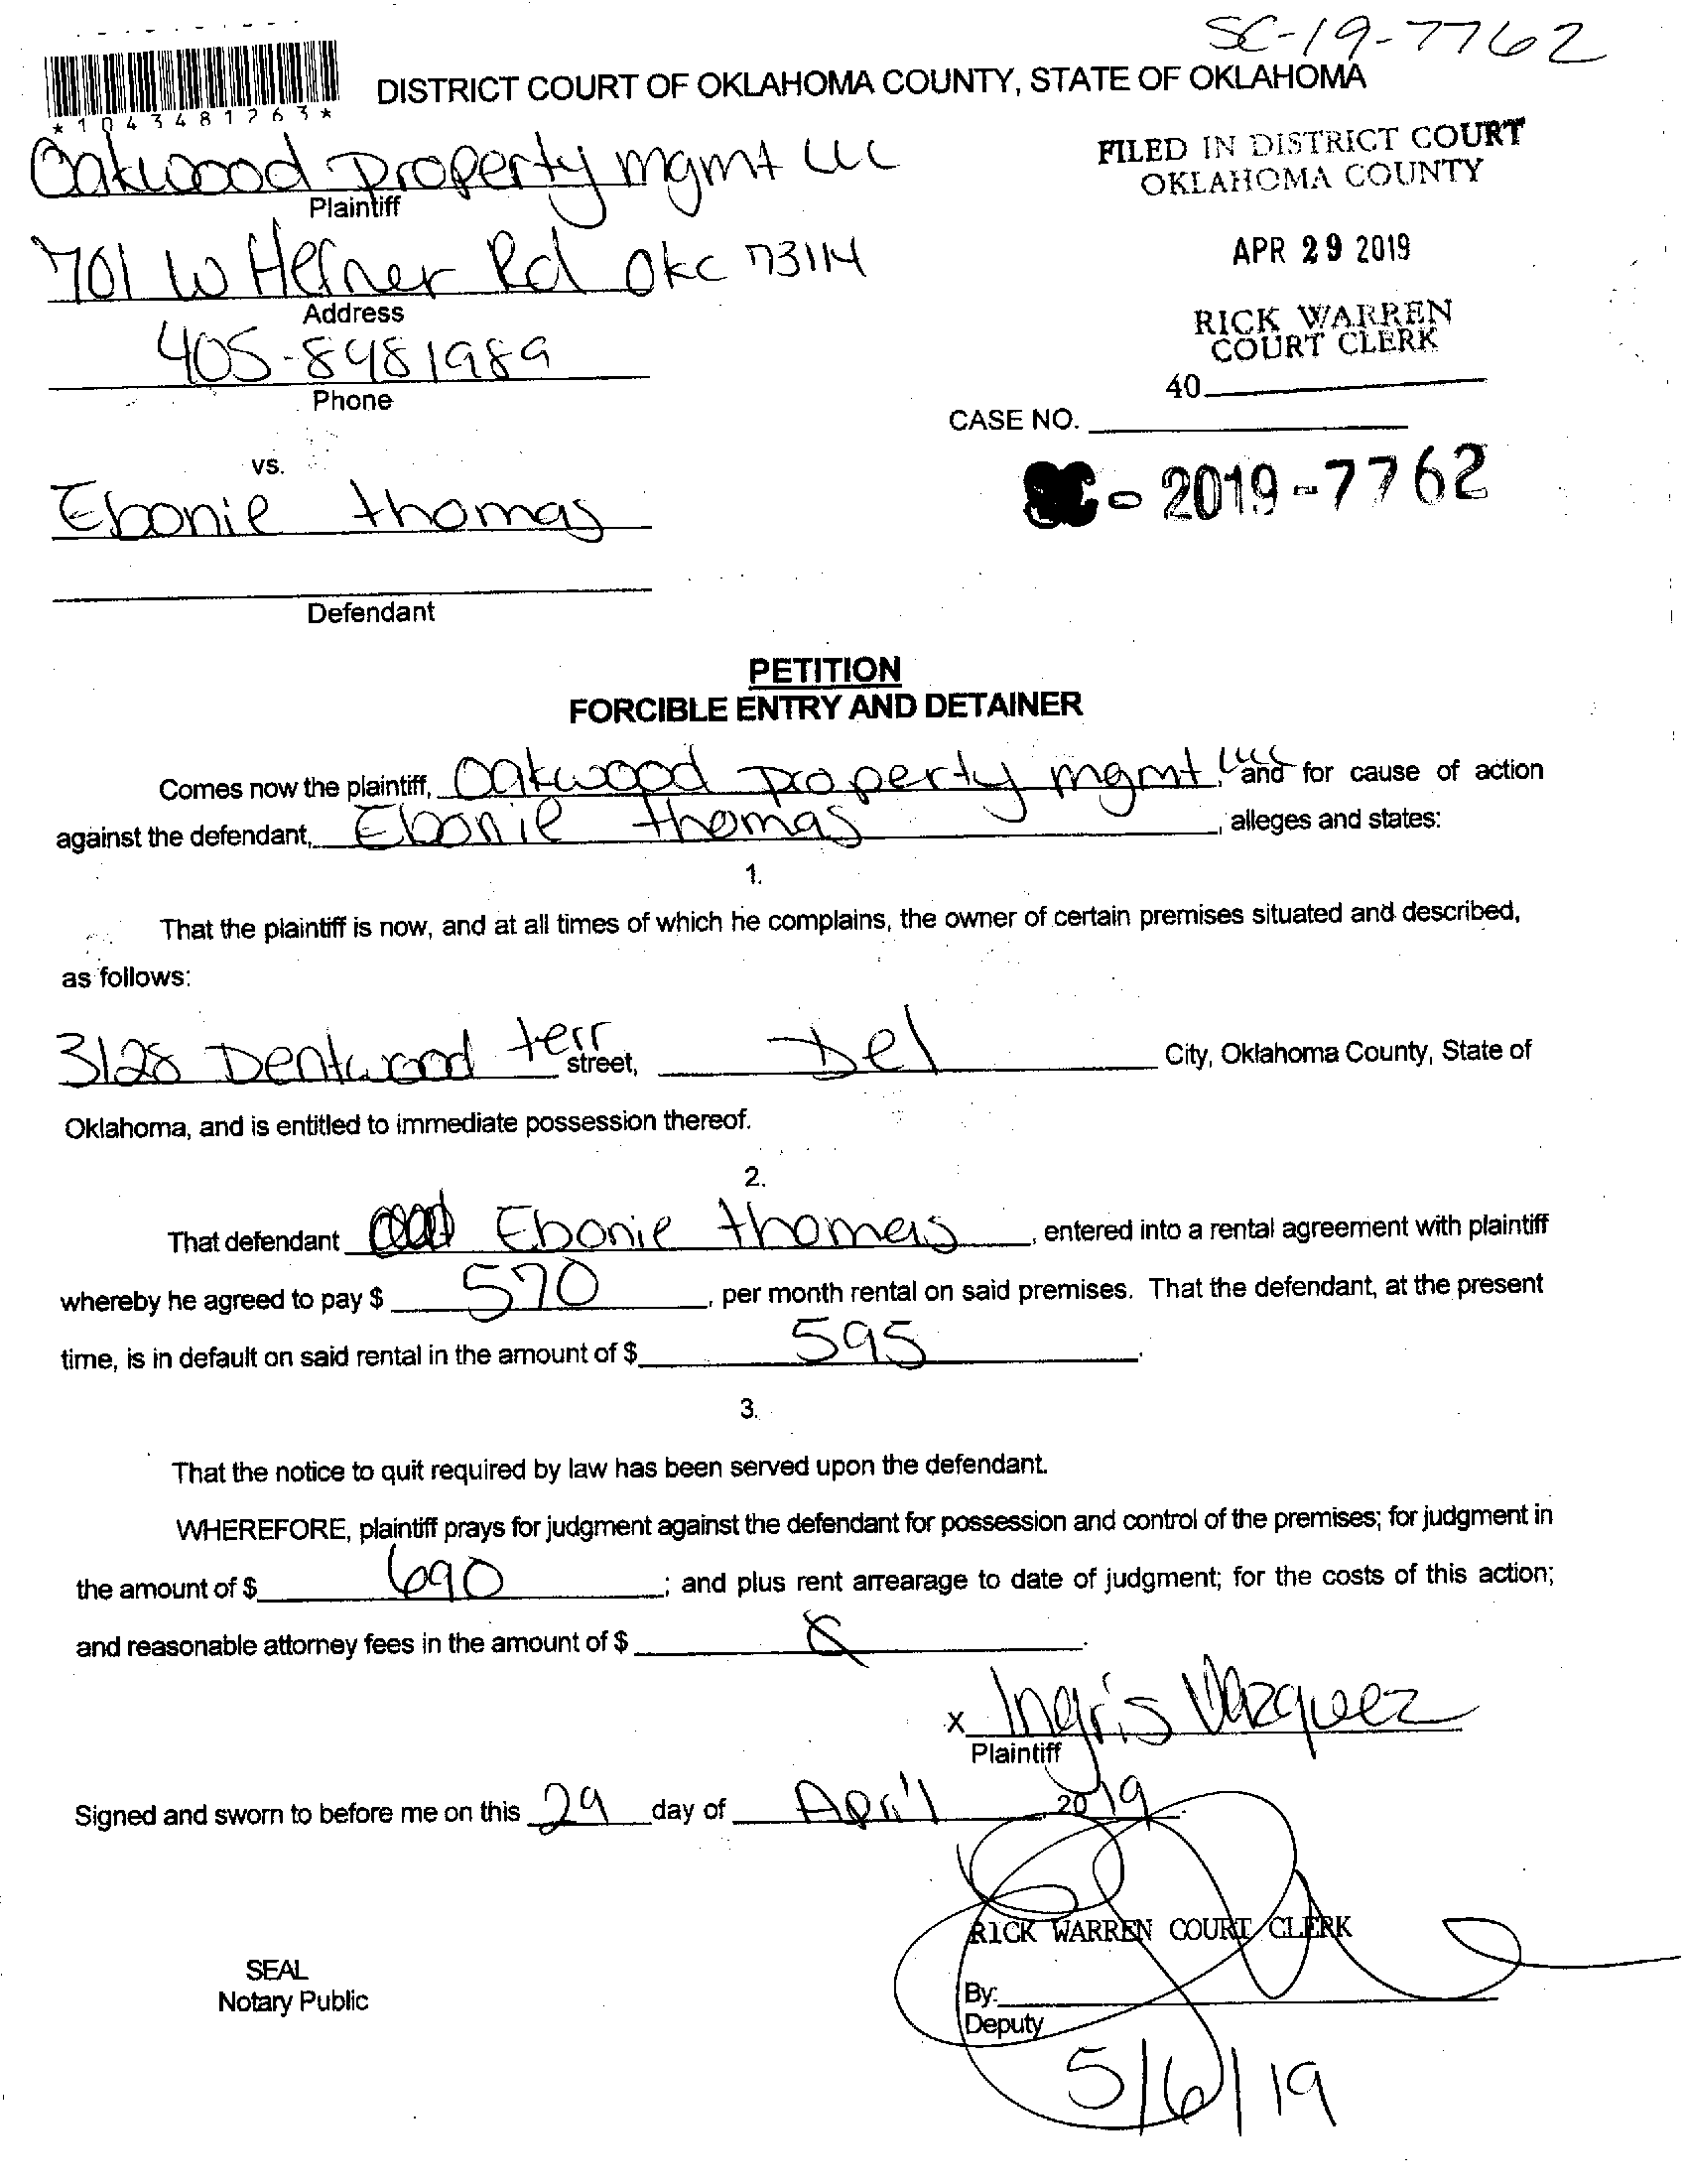 SC-19-7762
DISTRICT COURT OF OKLAHOMA COUNTY, STATE OF OKLAHOMA
*1043481263*
Oakwood Property mgmt LLC
Plaintiff
FILED IN DISTRICT COURT
OKLAHOMA COUNTY
701 W Hefner Rd Okc 73114
Address
APR 29 2019
405-8481989
Phone
RICK WARREN
COURT CLERK
40
CASE NO.
SC - 2019-7762
vs.
Ebonie thomas
Defendant
PETITION
FORCIBLE ENTRY AND DETAINER
Comes now the plaintiff, Oakwood Property mgmt LLC, and for cause of action
against the defendant, Ebonie thomas, alleges and states:
1.
That the plaintiff is now, and at all times of which he complains, the owner of certain premises situated and described,
as follows:
3128 Dentwood terr street, Del City, Oklahoma County, State of
Oklahoma, and is entitled to immediate possession thereof.
2.
That defendant Ebonie thomas, entered into a rental agreement with plaintiff
whereby he agreed to pay $ 570, per month rental on said premises. That the defendant, at the present
time, is in default on said rental in the amount of $ 595.
3.
That the notice to quit required by law has been served upon the defendant.
WHEREFORE, plaintiff prays for judgment against the defendant for possession and control of the premises; for judgment in
the amount of $ 690; and plus rent arrearage to date of judgment; for the costs of this action;
and reasonable attorney fees in the amount of $
x Ingris Vazquez
Plaintiff
Signed and sworn to before me on this 29 day of April, 2019.
RICK WARREN COURT CLERK
SEAL
Notary Public
By:
Deputy
5/6/19